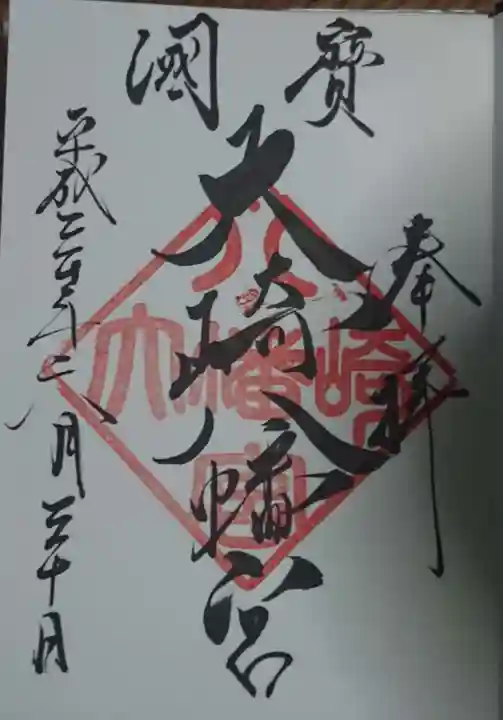 國寶
奉拝
大崎八幡宮
平成二年八月三十日
大崎八幡宮